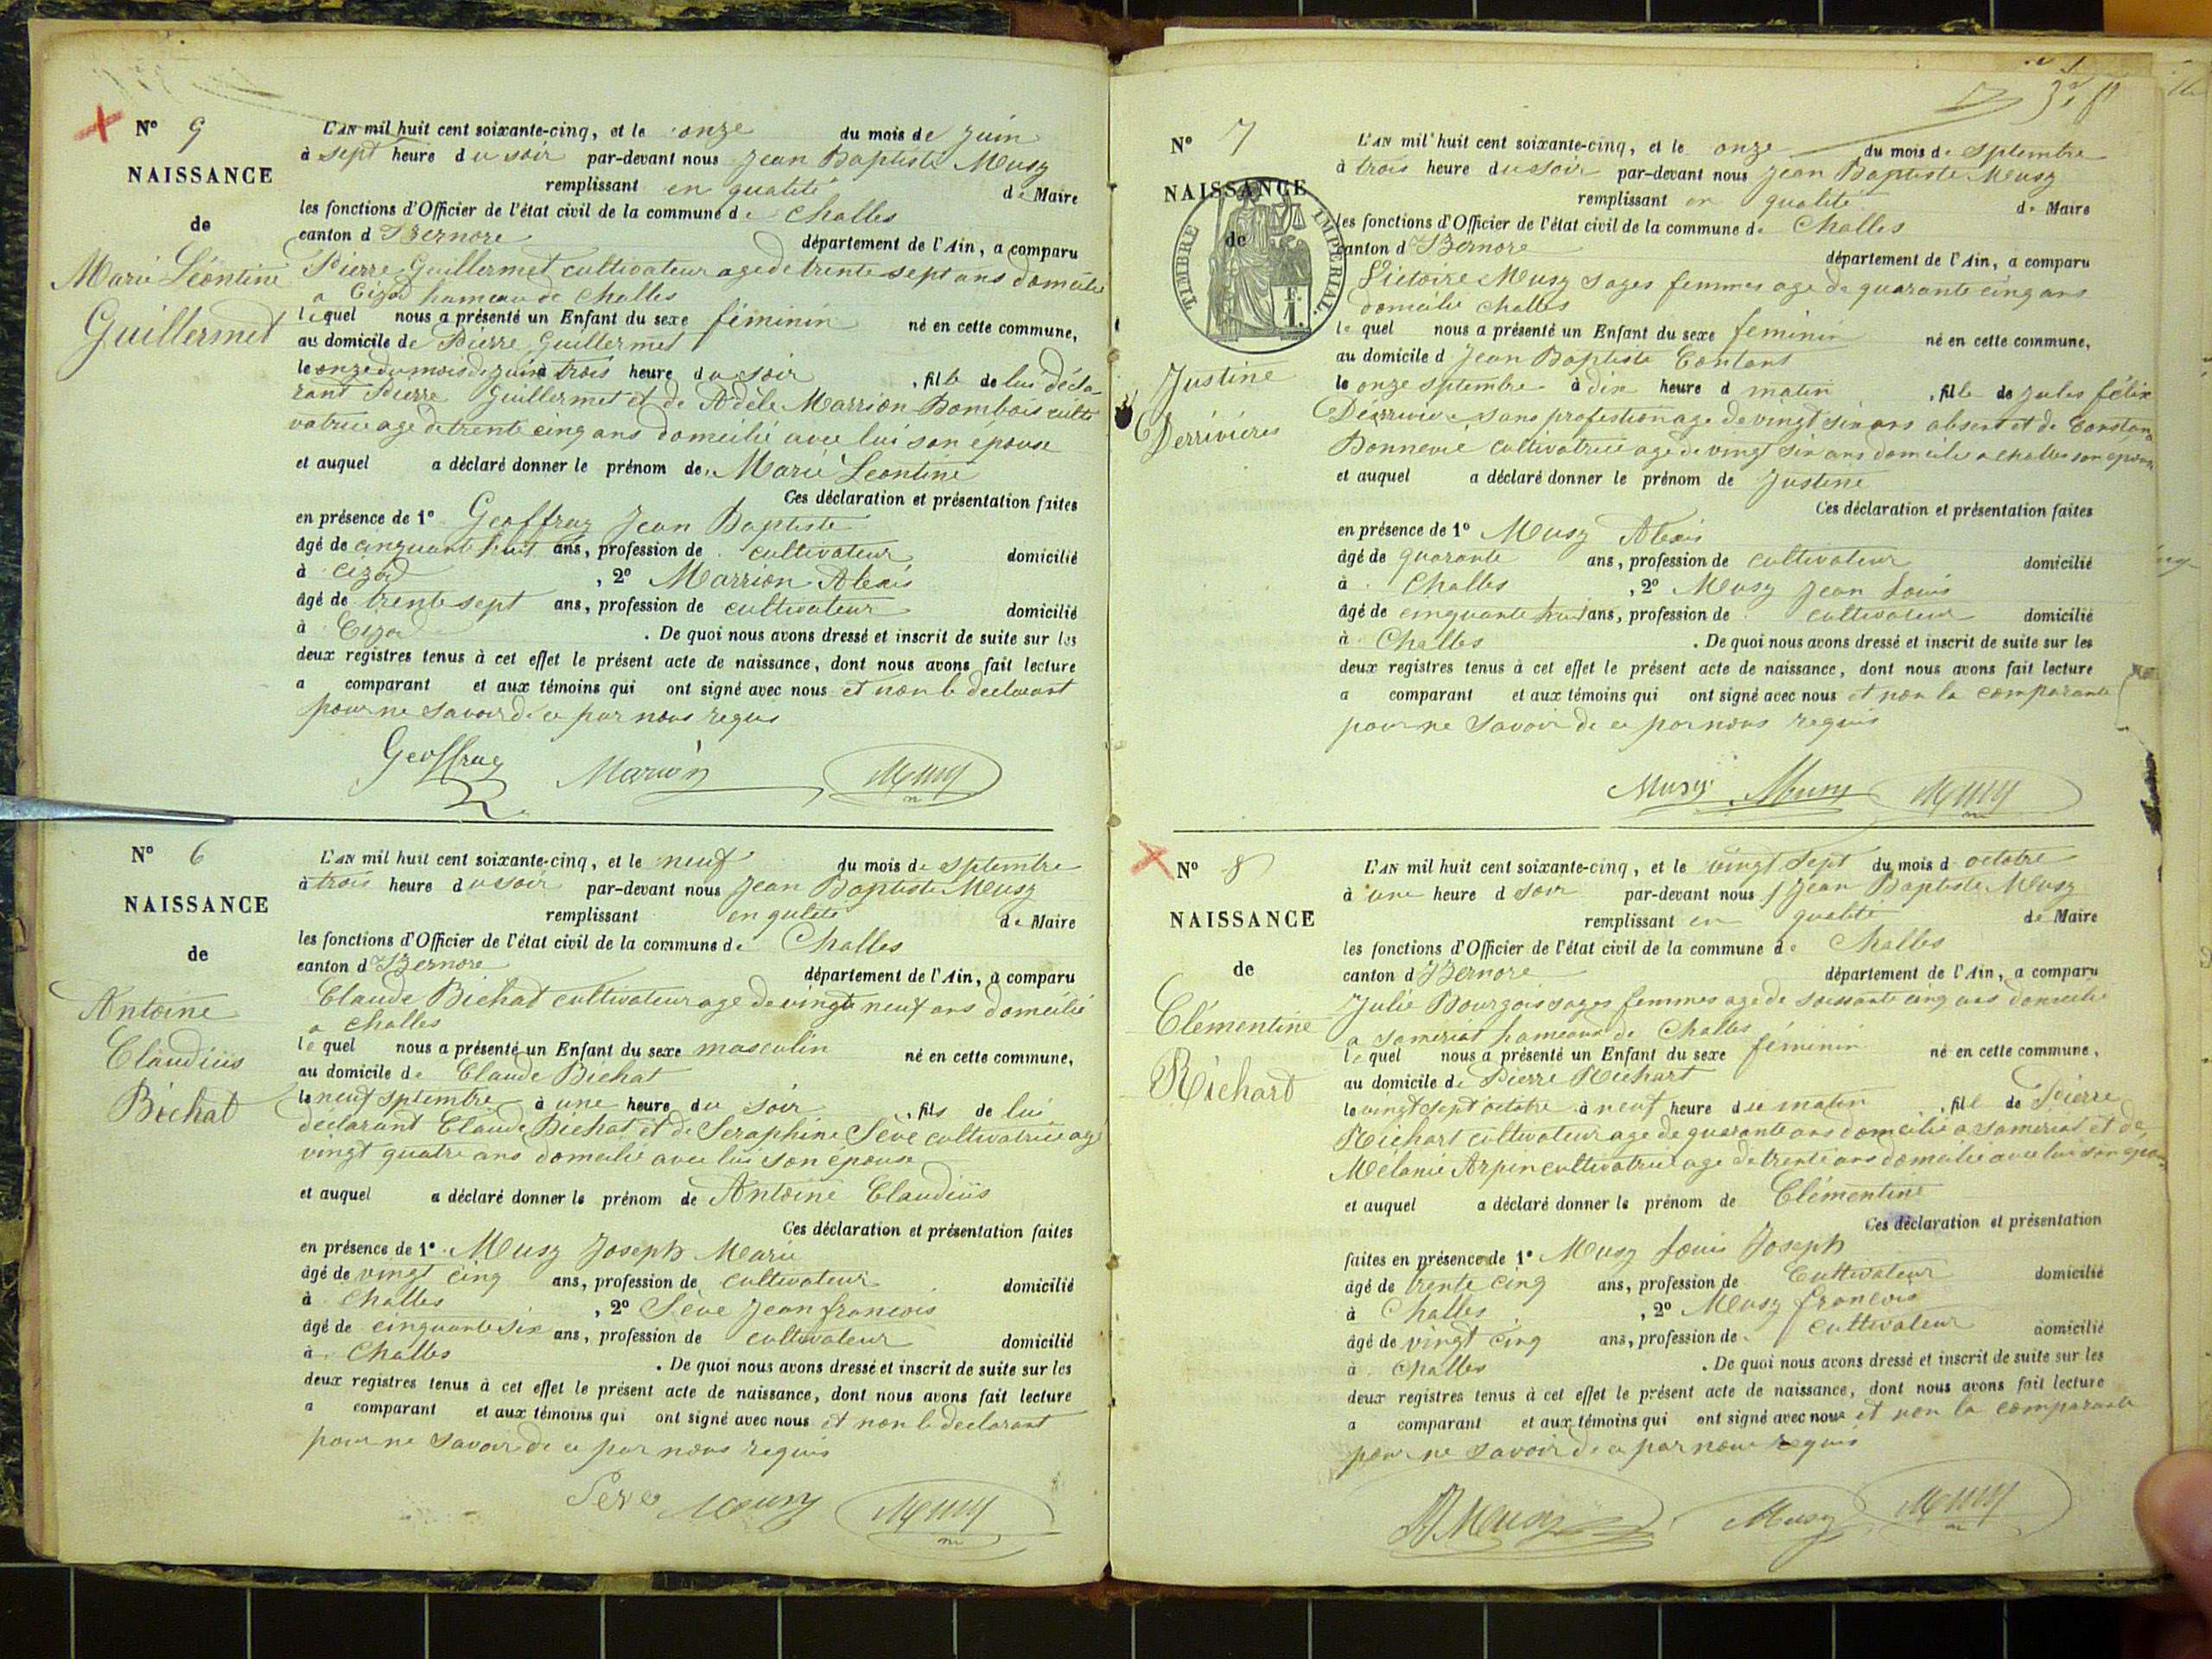 N° 9
NAISSANCE
de
Marie Léontine
Guillermet
L'AN mil huit cent soixante-cinq, et le onze du mois de juin
à sept heure du soir par-devant nous Jean Baptiste Musy
remplissant en qualité de Maire
les fonctions d'Officier de l'état civil de la commune de Challes
canton d Izernore département de l'Ain, a comparu
Pierre Guillermet cultivateur age de trente sept ans domicilié
a Cizod hameau de Challes
lequel nous a présenté un Enfant du sexe féminin né en cette commune,
au domicile de Pierre Guillermet
le onze du mois de juin à trois heure du soir, fille de lui décla-
rant Pierre Guillermet et de Adèle Marrion Dombois culti
vatrice age de trente cinq ans domicilié avec lui son épouse
et auquel a déclaré donner le prénom de Marie Leontine
Ces déclaration et présentation faites
en présence de 1° Geoffray Jean Baptiste
âgé de cinquante huit ans, profession de cultivateur domicilié
à Cizod, 2° Marrion Alexis
âgé de trente sept ans, profession de cultivateur domicilié
à Cizod. De quoi nous avons dressé et inscrit de suite sur les
deux registres tenus à cet effet le présent acte de naissance, dont nous avons fait lecture
a comparant et aux témoins qui ont signé avec nous et non le declarant
pour ne savoir de ce par nous requis
Geoffray Marion Musy
N° 6
NAISSANCE
de
Antoine
Claudiüs
Bichat
L'AN mil huit cent soixante-cinq, et le neuf du mois de Sptembre
à trois heure du soir par-devant nous Jean Baptiste Musy
remplissant en qulité de Maire
les fonctions d'Officier de l'état civil de la commune de Challes
canton d Izernore département de l'Ain, a comparu
Claude Bichat cultivateur age de vingt neuf ans domicilié
a Challes
lequel nous a présenté un Enfant du sexe masculin né en cette commune,
au domicile de Claude Bichat
le neuf Sptembre à une heure du soir, fils de lui
déclarant Claude Bichat et de Seraphine Sève cultivatrice agé
vingt quatre ans domicilié avec lui son épouse
et auquel a déclaré donner le prénom de Antoine Claudiüs
Ces déclaration et présentation faites
en présence de 1° Musy Joseph Marie
âgé de vingt cinq ans, profession de cultivateur domicilié
à Challes, 2° Sève Jean francois
âgé de cinquante six ans, profession de cultivateur domicilié
à Challes. De quoi nous avons dressé et inscrit de suite sur les
deux registres tenus à cet effet le présent acte de naissance, dont nous avons fait lecture
a comparant et aux témoins qui ont signé avec nous et non le declarant
pour ne savoir de ce par nous requis
Seve Musy Musy
N° 7
NAISSANCE
de
TIMBRE IMPÉRIAL
F.
1.
Justine
Derrivières
L'AN mil huit cent soixante-cinq, et le onze du mois de Sptembre
à trois heure du soir par-devant nous Jean Baptiste Musy
remplissant en qualité de Maire
les fonctions d'Officier de l'état civil de la commune de Challes
canton d Izernore département de l'Ain, a comparu
Victoire Musy Sages femmes age de quarante cinq ans
domicilié Challes
le quel nous a présenté un Enfant du sexe féminin né en cette commune,
au domicile d Jean Baptiste
le onze Sptembre à dix heure d matin, fille de Jules félix
sans profestion age de vingt six ans absent et de
Bonnevie cultivatrice age de vingt six ans domicilié a Challes son epouse
et auquel a déclaré donner le prénom de Justine
Ces déclaration et présentation faites
en présence de 1° Musy Alexis
âgé de quarante ans, profession de cultivateur domicilié
à Challes, 2° Musy Jean Louis
âgé de cinquante huit ans, profession de cultivateur domicilié
à Challes. De quoi nous avons dressé et inscrit de suite sur les
deux registres tenus à cet effet le présent acte de naissance, dont nous avons fait lecture
a comparant et aux témoins qui ont signé avec nous et non la comparante
pour ne savoir de ce par nous requis
Musy Musy Musy
N° 8
NAISSANCE
de
Clémentine
Richart
L'AN mil huit cent soixante-cinq, et le vingt sept du mois d octobre
à une heure d soir par-devant nous Jean Baptiste Musy
remplissant en qualité de Maire
les fonctions d'Officier de l'état civil de la commune de Challes
canton d Izernore département de l'Ain, a comparu
Julie Bourgois sages femmes age de soissante cinq ans domicilié
a Sameriat hameaux de Challes
lequel nous a présenté un Enfant du sexe féminin né en cette commune,
au domicile de Pierre Richart
le vingt sept octobre à neuf heure due matin, fille de Pierre
Richart cultivateur age de quarante ans domicilié a Sameriat et de
Mélanie Arpin cultivatrice age de trente ans domicilié avec lui son epouse
et auquel a déclaré donner le prénom de Clémentine
Ces déclaration et présentation
faites en présence de 1° Musy Louis Joseph
âgé de trente cinq ans, profession de Cultivateur domicilié
à Challes, 2° Musy francois
âgé de vingt cinq ans, profession de cultivateur domicilié
à Challes. De quoi nous avons dressé et inscrit de suite sur les
deux registres tenus à cet effet le présent acte de naissance, dont nous avons fait lecture
a comparant et aux témoins qui ont signé avec nous et non la comparante
pour ne savoir de ce par nous requis
Musy Musy Musy